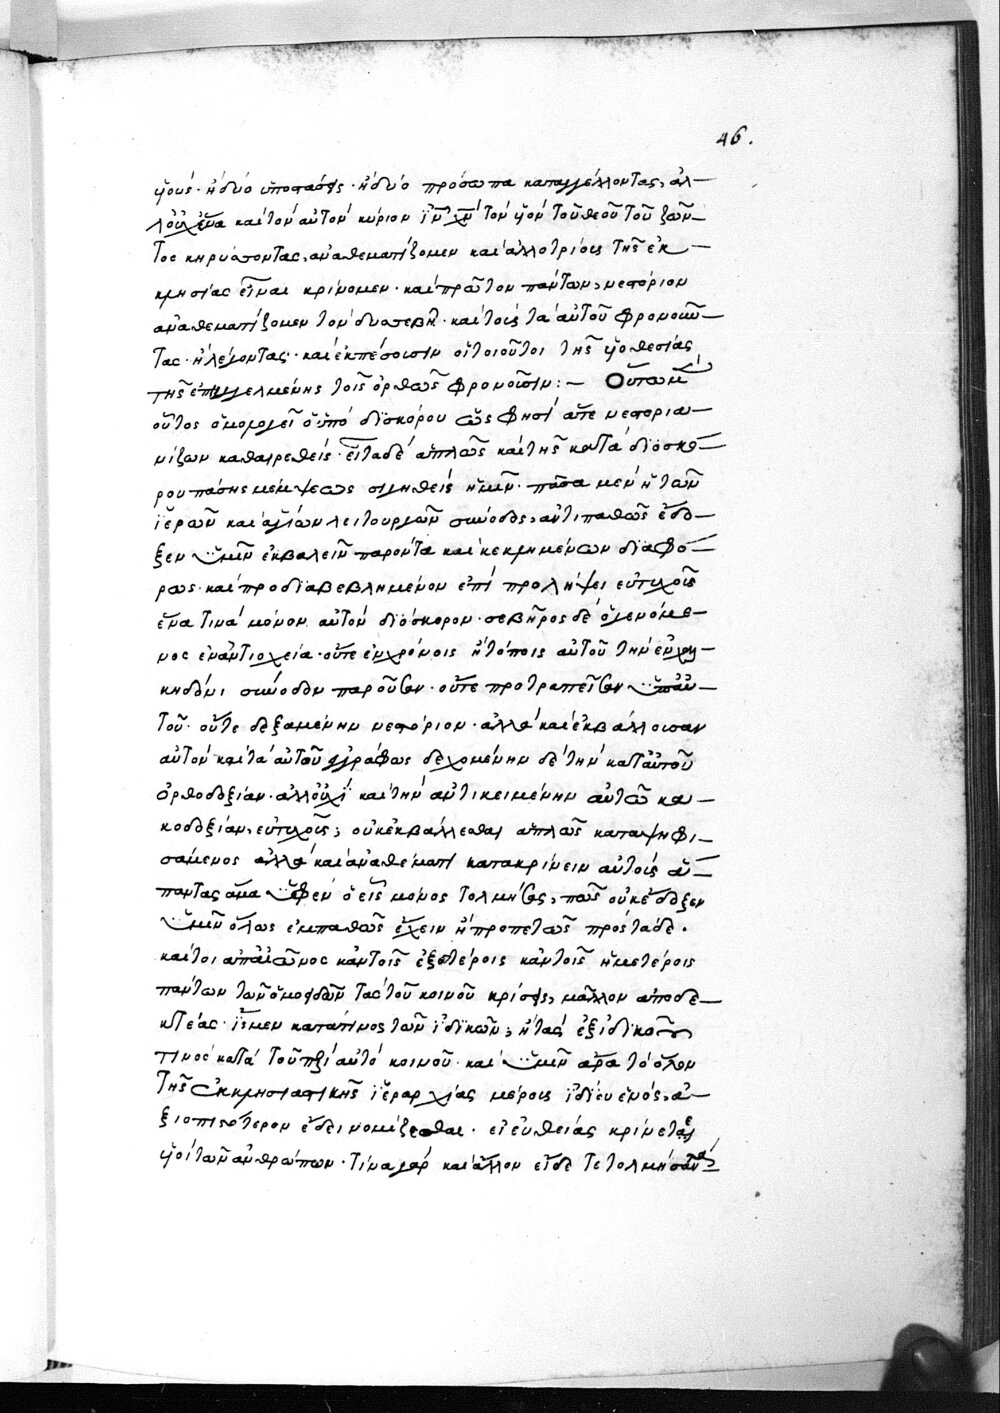 46.
υἱούς· ἢ δύο ὑποστάσεις· ἢ δύο πρόσωπα καταγγέλλοντας, ἀλ-
λ' οὐχ ἕνα καὶ τὸν αὐτὸν κύριον ἰν χν τὸν υἱὸν τοῦ θεοῦ τοῦ ζῶν-
τος κηρύττοντας, ἀναθεματίζομεν καὶ ἀλλοτρίους τῆς ἐκ-
κλησίας εἶναι κρίνομεν· καὶ πρῶτον πάντων νεστόριον
ἀναθεματίζομεν τὸν δυσσεβῆ· καὶ τοὺς τὰ αὐτοῦ φρονοῦν-
τας· ἢ λέγοντας· καὶ ἐκπέσοισιν οἱ τοιοῦτοι τῆς υἱοθεσίας
τῆς ἐπηγγελμένης τοῖς ὀρθῶς φρονοῦσιν:- Οὕτω μὲν
οὗτος ὁμολογεῖ ὁ ὑπὸ διοσκόρου ὥς φησὶ ἅτε νεστορια-
νίζων καθαιρεθείς· εἶτα δὲ ἁπλῶς καὶ τῆς κατὰ διοσκό-
ρου πάσης μέμψεως σιγηθείσης ἡμῖν· πᾶσα μὲν ἡ τῶν
ἱερῶν καὶ ἁγίων λειτουργῶν σύνοδος, ἀντιπαθῶς ἔδο-
ξεν ὑμῖν ἐκβαλεῖν παρόντα καὶ κεκλημένον διαφό-
ρως· καὶ προδιαβεβλημένον ἐπὶ προλήψει εὐτυχοῦς
ἕνα τινὰ μόνον αὐτὸν διόσκορον· σεβῆρος δὲ ὁ γενόμε-
νος ἐν ἀντιοχείᾳ· οὔτε ἐν χρόνοις ἢ τόποις αὐτοῦ τὴν ἐν χαλ-
κηδόνι σύνοδον παροῦσαν· οὔτε προτραπεῖσαν ὑπ' αὐ-
τοῦ· οὔτε δεξαμένην νεστόριον· ἀλλὰ καὶ ἐκβάλλουσαν
αὐτὸν καὶ τὰ αὐτοῦ ἐγγράφως δεχομένην δὲ τὴν κατ' αὐτοῦ
ὀρθοδοξίαν· ἀλλ' οὐχὶ καὶ τὴν ἀντικειμένην αὐτῷ κα-
κοδοξίαν, εὐτυχοῦς, οὐκ ἐκβάλλεσθαι ἁπλῶς καταψηφι-
σάμενος ἀλλὰ καὶ ἀναθέματι κατακρίνειν αὐτοὺς ἅ-
παντας ἅμα ὑφ' ἓν ὁ εἷς μόνος τολμήσας, πῶς οὐκ ἔδοξεν
ὑμῖν ὅλως ἐμπαθῶς ἔχειν ἢ προπετῶς πρὸς τάδε·
καίτοι ἀπ' αἰῶνος κἀν τοῖς ἐξωτέροις κἀν τοῖς ἡμετέροις
πάντων τῶν ὁμοφώνων τὰς τοῦ κοινοῦ κρίσεις, μᾶλλον ἀποδε-
κτέας· ἴσμεν κατά τινος τῶν ἰδικῶν, ἢ τὰς ἐξ ἰδικοῦ
τινὸς κατὰ τοῦ πλείστου κοινοῦ· καὶ ὑμῖν ἄρα τὸ ὅλον
τῆς ἐκκλησιαστικῆς ἱεραρχίας μέρους ἰδίου ἑνός, ἀ-
ξιοπιστότερον ἔδει νομίζεσθαι· εἰ εὐθείας κρίνετε
υἱοὶ τῶν ἀνθρώπων· τίνα γὰρ καὶ ἄλλον εἴδετε τολμήσαντα